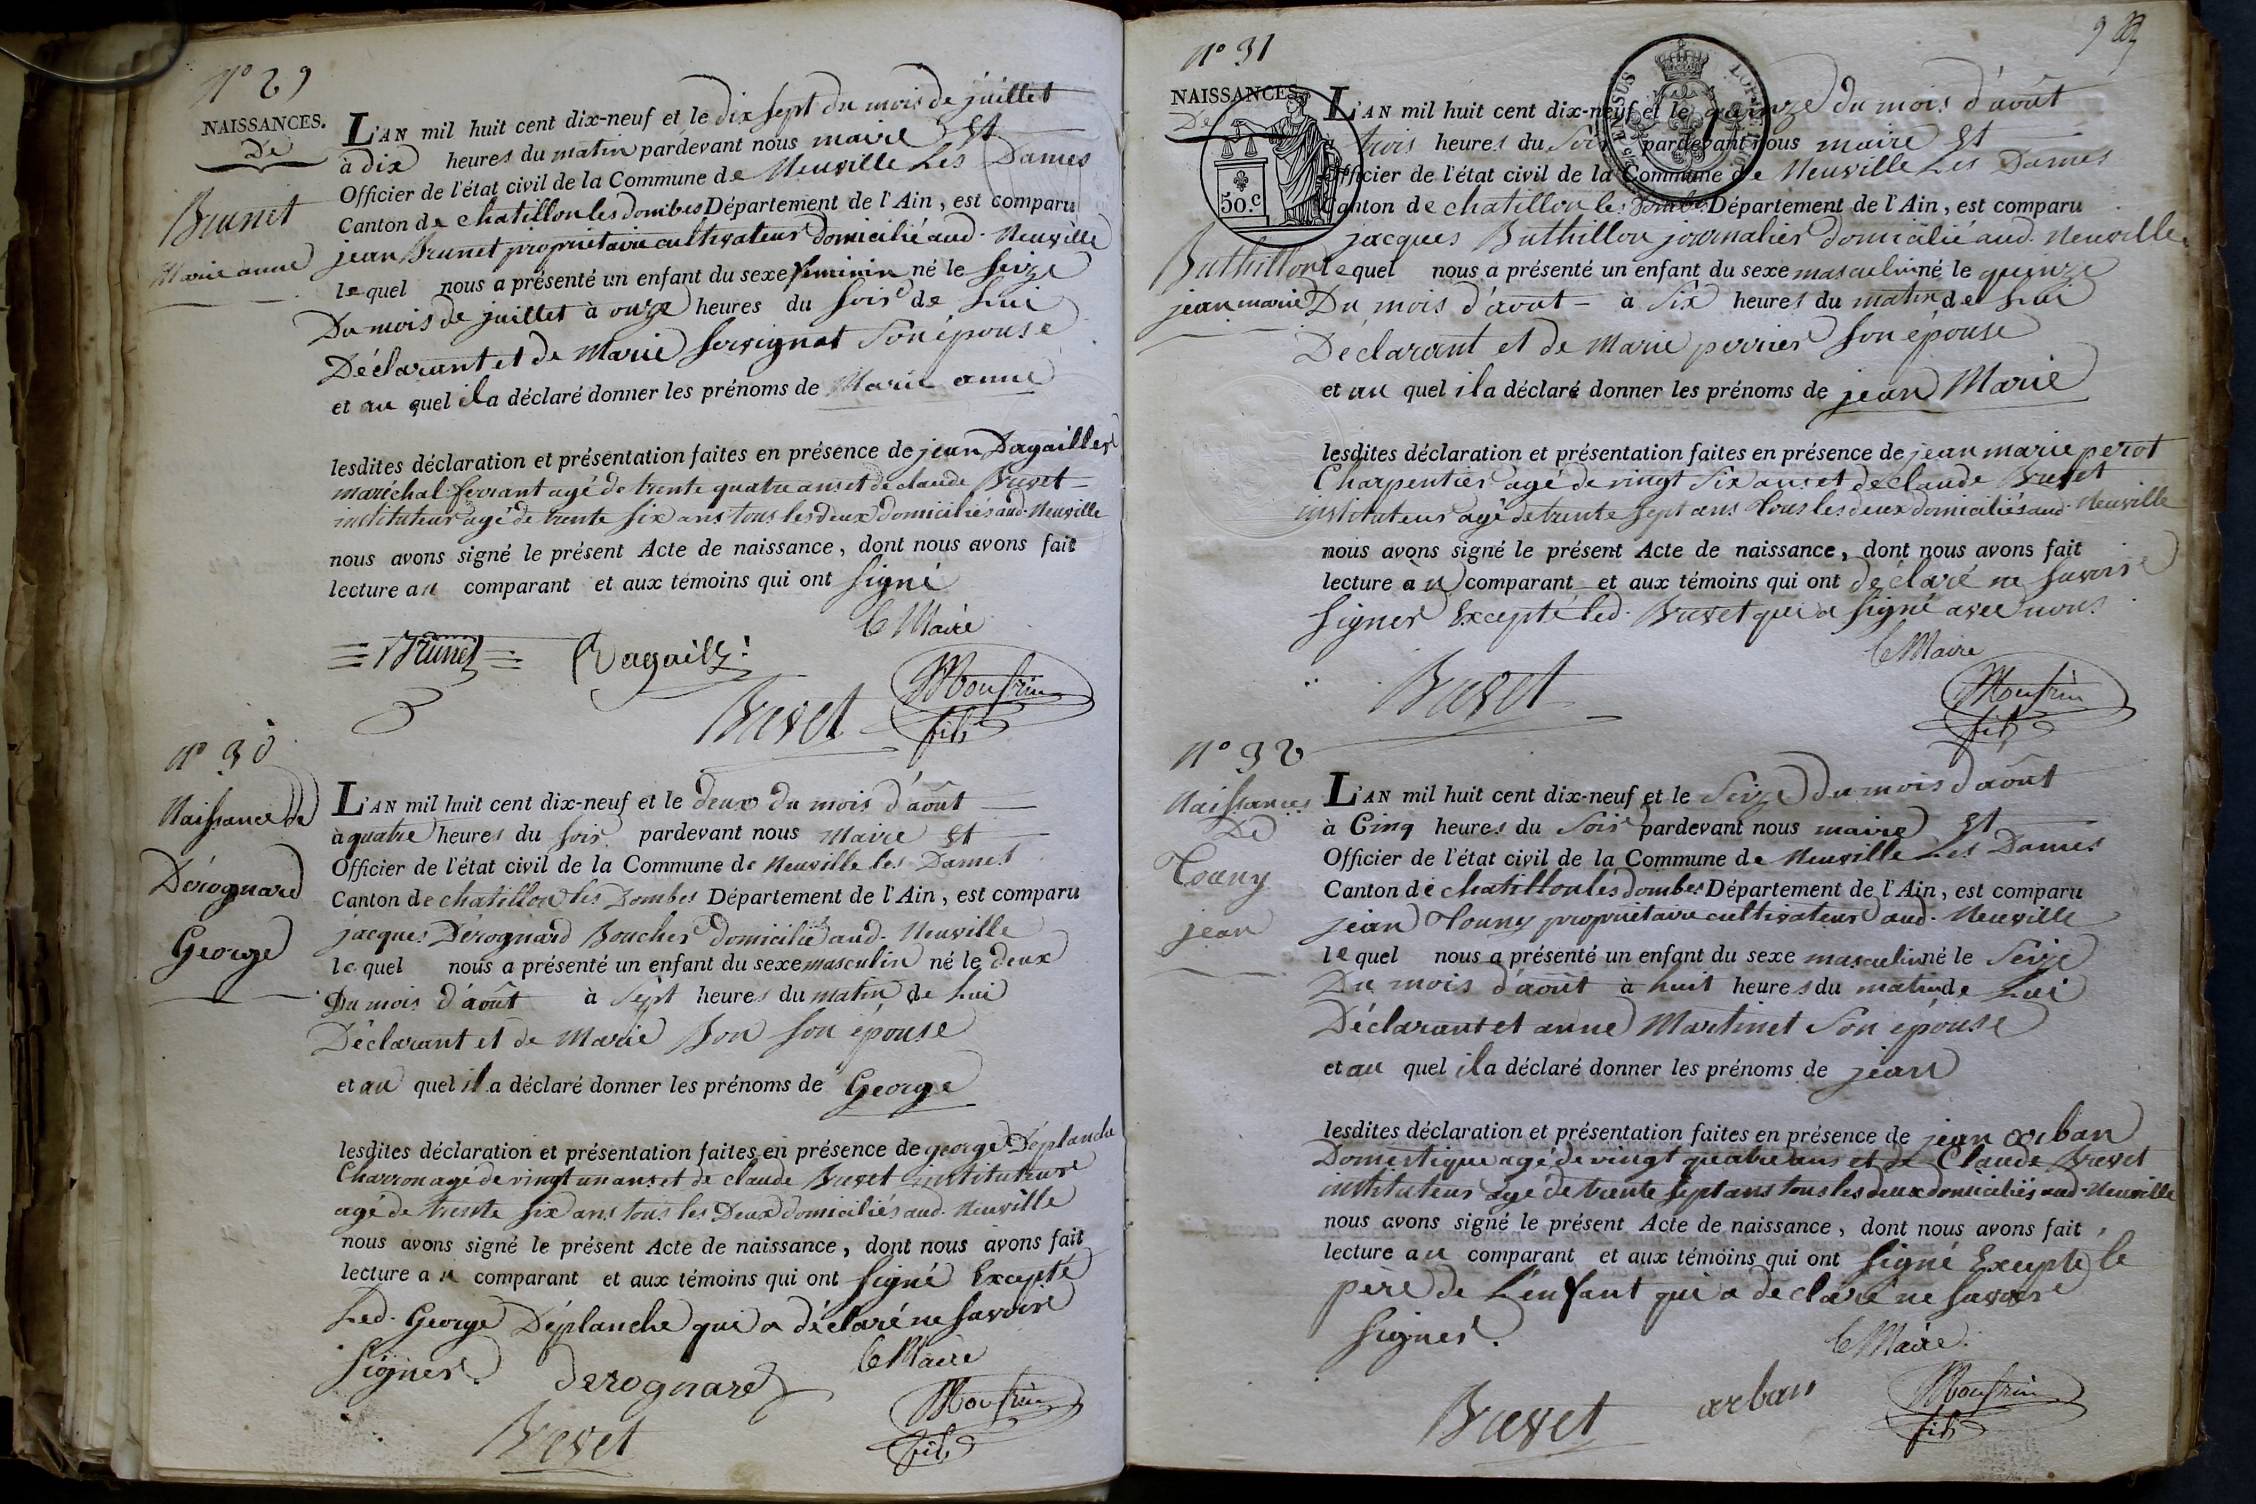 N° 29
NAISSANCES.
De
Brunet
Marie anne
L'AN mil huit cent dix-neuf et le dix sept du mois de juillet
à dix heures du matin pardevant nous maire Et
Officier de l'état civil de la Commune de Neuville Les Dames
Canton de chatillon les dombes Département de l'Ain, est comparu
jean Brunet propriétaire cultivateur domicilié aud. Neuville
lequel nous a présenté un enfant du sexe féminin né le seize
Du mois de juillet à onze heures du soir de Lui
Déclarant et de Marie Servignat Son épouse
et au quel il a déclaré donner les prénoms de Marie anne
lesdites déclaration et présentation faites en présence de jean Dagallier
maréchal ferrant agé de trente quatre ans et de claude Brevet
instituteur agé de trente six ans tous les deux domiciliés aud. Neuville
nous avons signé le présent Acte de naissance, dont nous avons fait
lecture au comparant et aux témoins qui ont signé
le Maire
Brunet
Brevet
fils
N° 30
Naissance de
Dérognard
George
L'AN mil huit cent dix-neuf et le deux du mois d'août
à quatre heures du soir pardevant nous Maire Et
Officier de l'état civil de la Commune de Neuville les Dames
Canton de chatillon les Dombes Département de l'Ain, est comparu
jacques Dérognard Boucher domicilié aud. Neuville
lequel nous a présenté un enfant du sexe masculin né le deux
Du mois d'août à Sept heures du matin de Lui
Déclarant et de Marie Bon son épouse
et au quel il a déclaré donner les prénoms de George
lesdites déclaration et présentation faites en présence de george Déplanche
Charron agé de vingt un ans et de claude Brevet instituteur
agé de trente six ans tous les Deux domiciliés aud. Neuville
nous avons signé le présent Acte de naissance, dont nous avons fait
lecture au comparant et aux témoins qui ont signé Excepté
Led. George Déplanche qui a déclaré ne savoir
signer.
derognard
le Maire
Brevet
fils
N° 31
NAISSANCES
De
50.c
Buthillon
jean marie
L'AN mil huit cent dix-neuf et le quinze du mois d'août
à trois heures du Soir pardevant nous maire Et
Officier de l'état civil de la Commune de Neuville Les Dames
Canton de chatillon les Dombes Département de l'Ain, est comparu
jacques Buthillon journalier domicilié aud. Neuville
lequel nous a présenté un enfant du sexe masculin né le quinze
Du mois d'aout à Six heures du matin de Lui
Déclarant et de Marie perrier son épouse
et au quel il a déclaré donner les prénoms de jean Marie
lesdites déclaration et présentation faites en présence de jean marie perot
Charpentier agé de vingt six ans et de claude Brevet
instituteur agé de trente sept ans Tous les deux domiciliés aud. Neuville
nous avons signé le présent Acte de naissance, dont nous avons fait
lecture au comparant et aux témoins qui ont déclaré ne savoir
signer Excepté led. Brevet qui a signé avec nous.
le Maire
Brevet
fils
N° 32
Naissances
De
Touny
jean
L'AN mil huit cent dix-neuf et le Seize du mois d'août
à Cinq heures du Soir pardevant nous maire Et
Officier de l'état civil de la Commune de Neuville Les Dames
Canton de chatillon les dombes Département de l'Ain, est comparu
jean Touny propriétaire cultivateur aud. Neuville
lequel nous a présenté un enfant du sexe masculin né le Seize
Du mois d'août à huit heures du matin de Lui
Déclarant et anne Martinet Son épouse
et au quel il a déclaré donner les prénoms de jean
lesdites déclaration et présentation faites en présence de jean arban
Domestique agé de vingt quatre ans et de Claude Brevet
instituteur agé de trente sept ans tous les deux domiciliés aud. Neuville
nous avons signé le présent Acte de naissance, dont nous avons fait
lecture au comparant et aux témoins qui ont signé Excepté le
père de L'enfant qui a déclaré ne savoir
signer.
le Maire.
Brevet
arban
fils